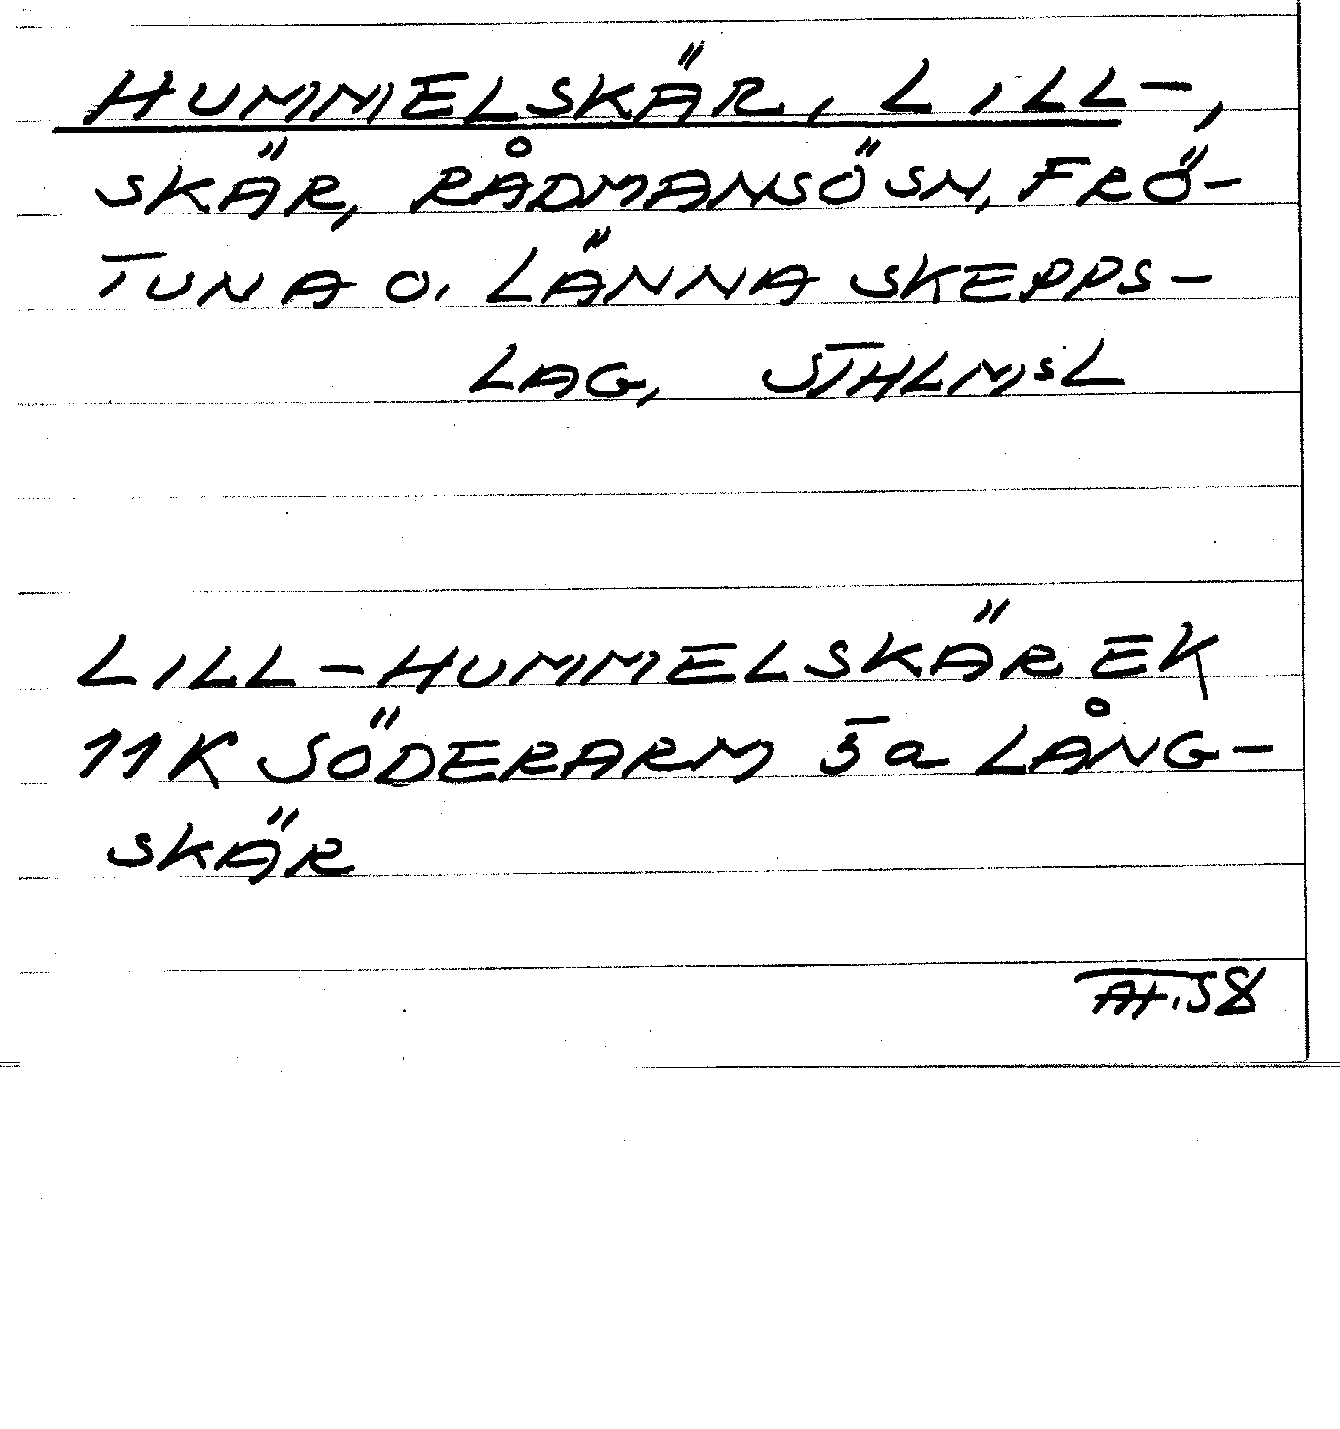 HUMMELSKÄR, LILL-,
SKÄR, RÅDMANSÖ SN, FRÖ-
TUNA O. LÄNNA SKEPPS-
LAG, STHLMSL
LILL-HUMMELSKÄR EK
11K SÖDERARM 5a LÅNG-
SKÄR